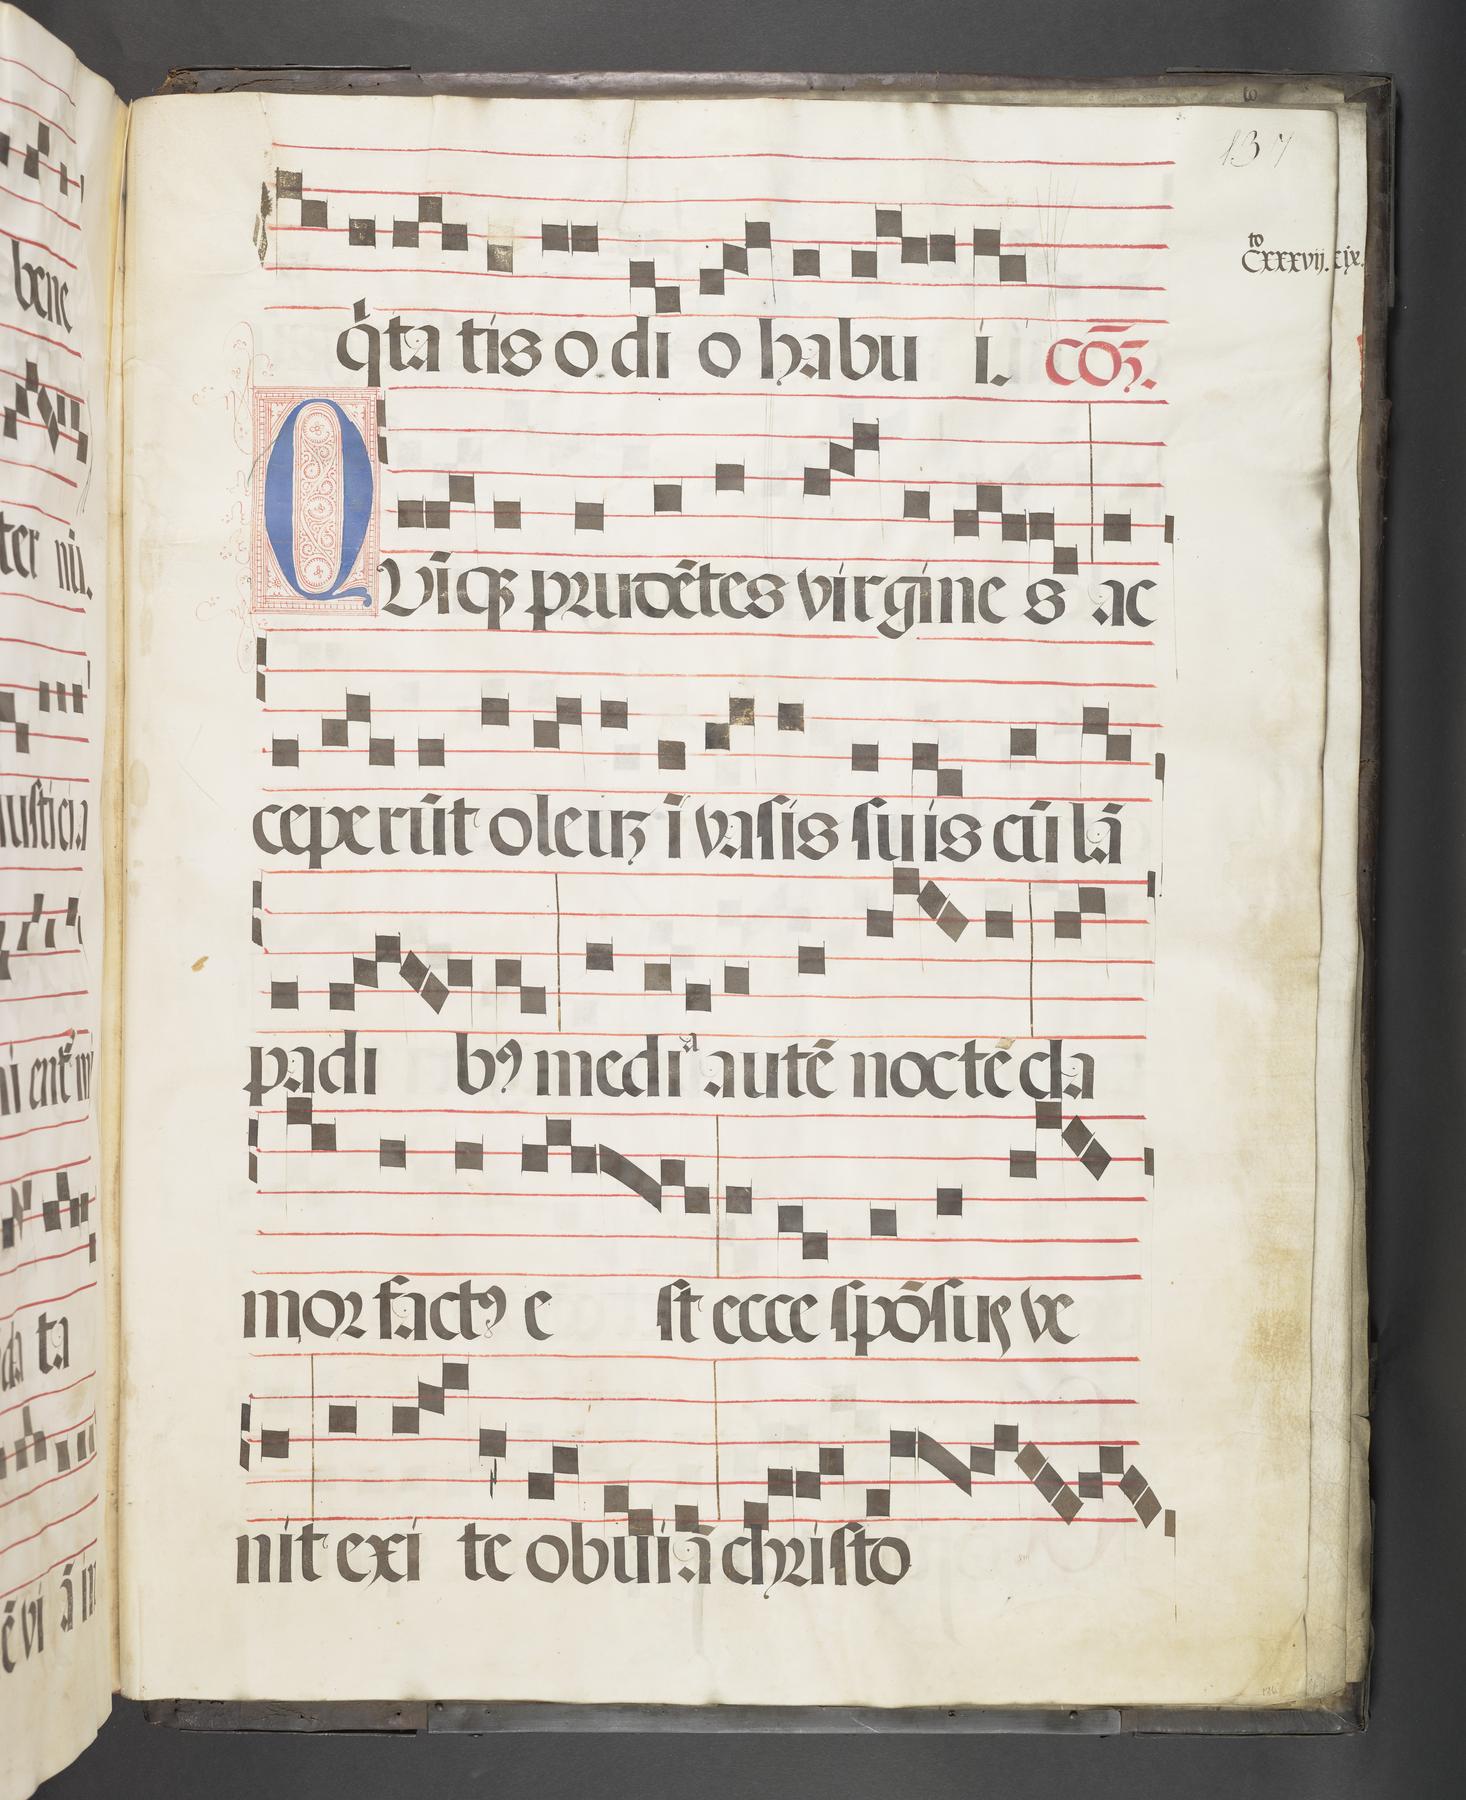 137
to
Cxxxvij. xjx.
q̇ta tis o di o habu i. cōʒ.
QVīqꝫ prudētes virgine s ac
ceperūt oleuꝫ ī vasis suis cū lā
padi bꝰ mediᵃ autē nocte cla
mor factꝰ e st ecce spōsus ve
nit exi te obuiā christo
bene
ter nū.
iusticia
ni ent
da ta